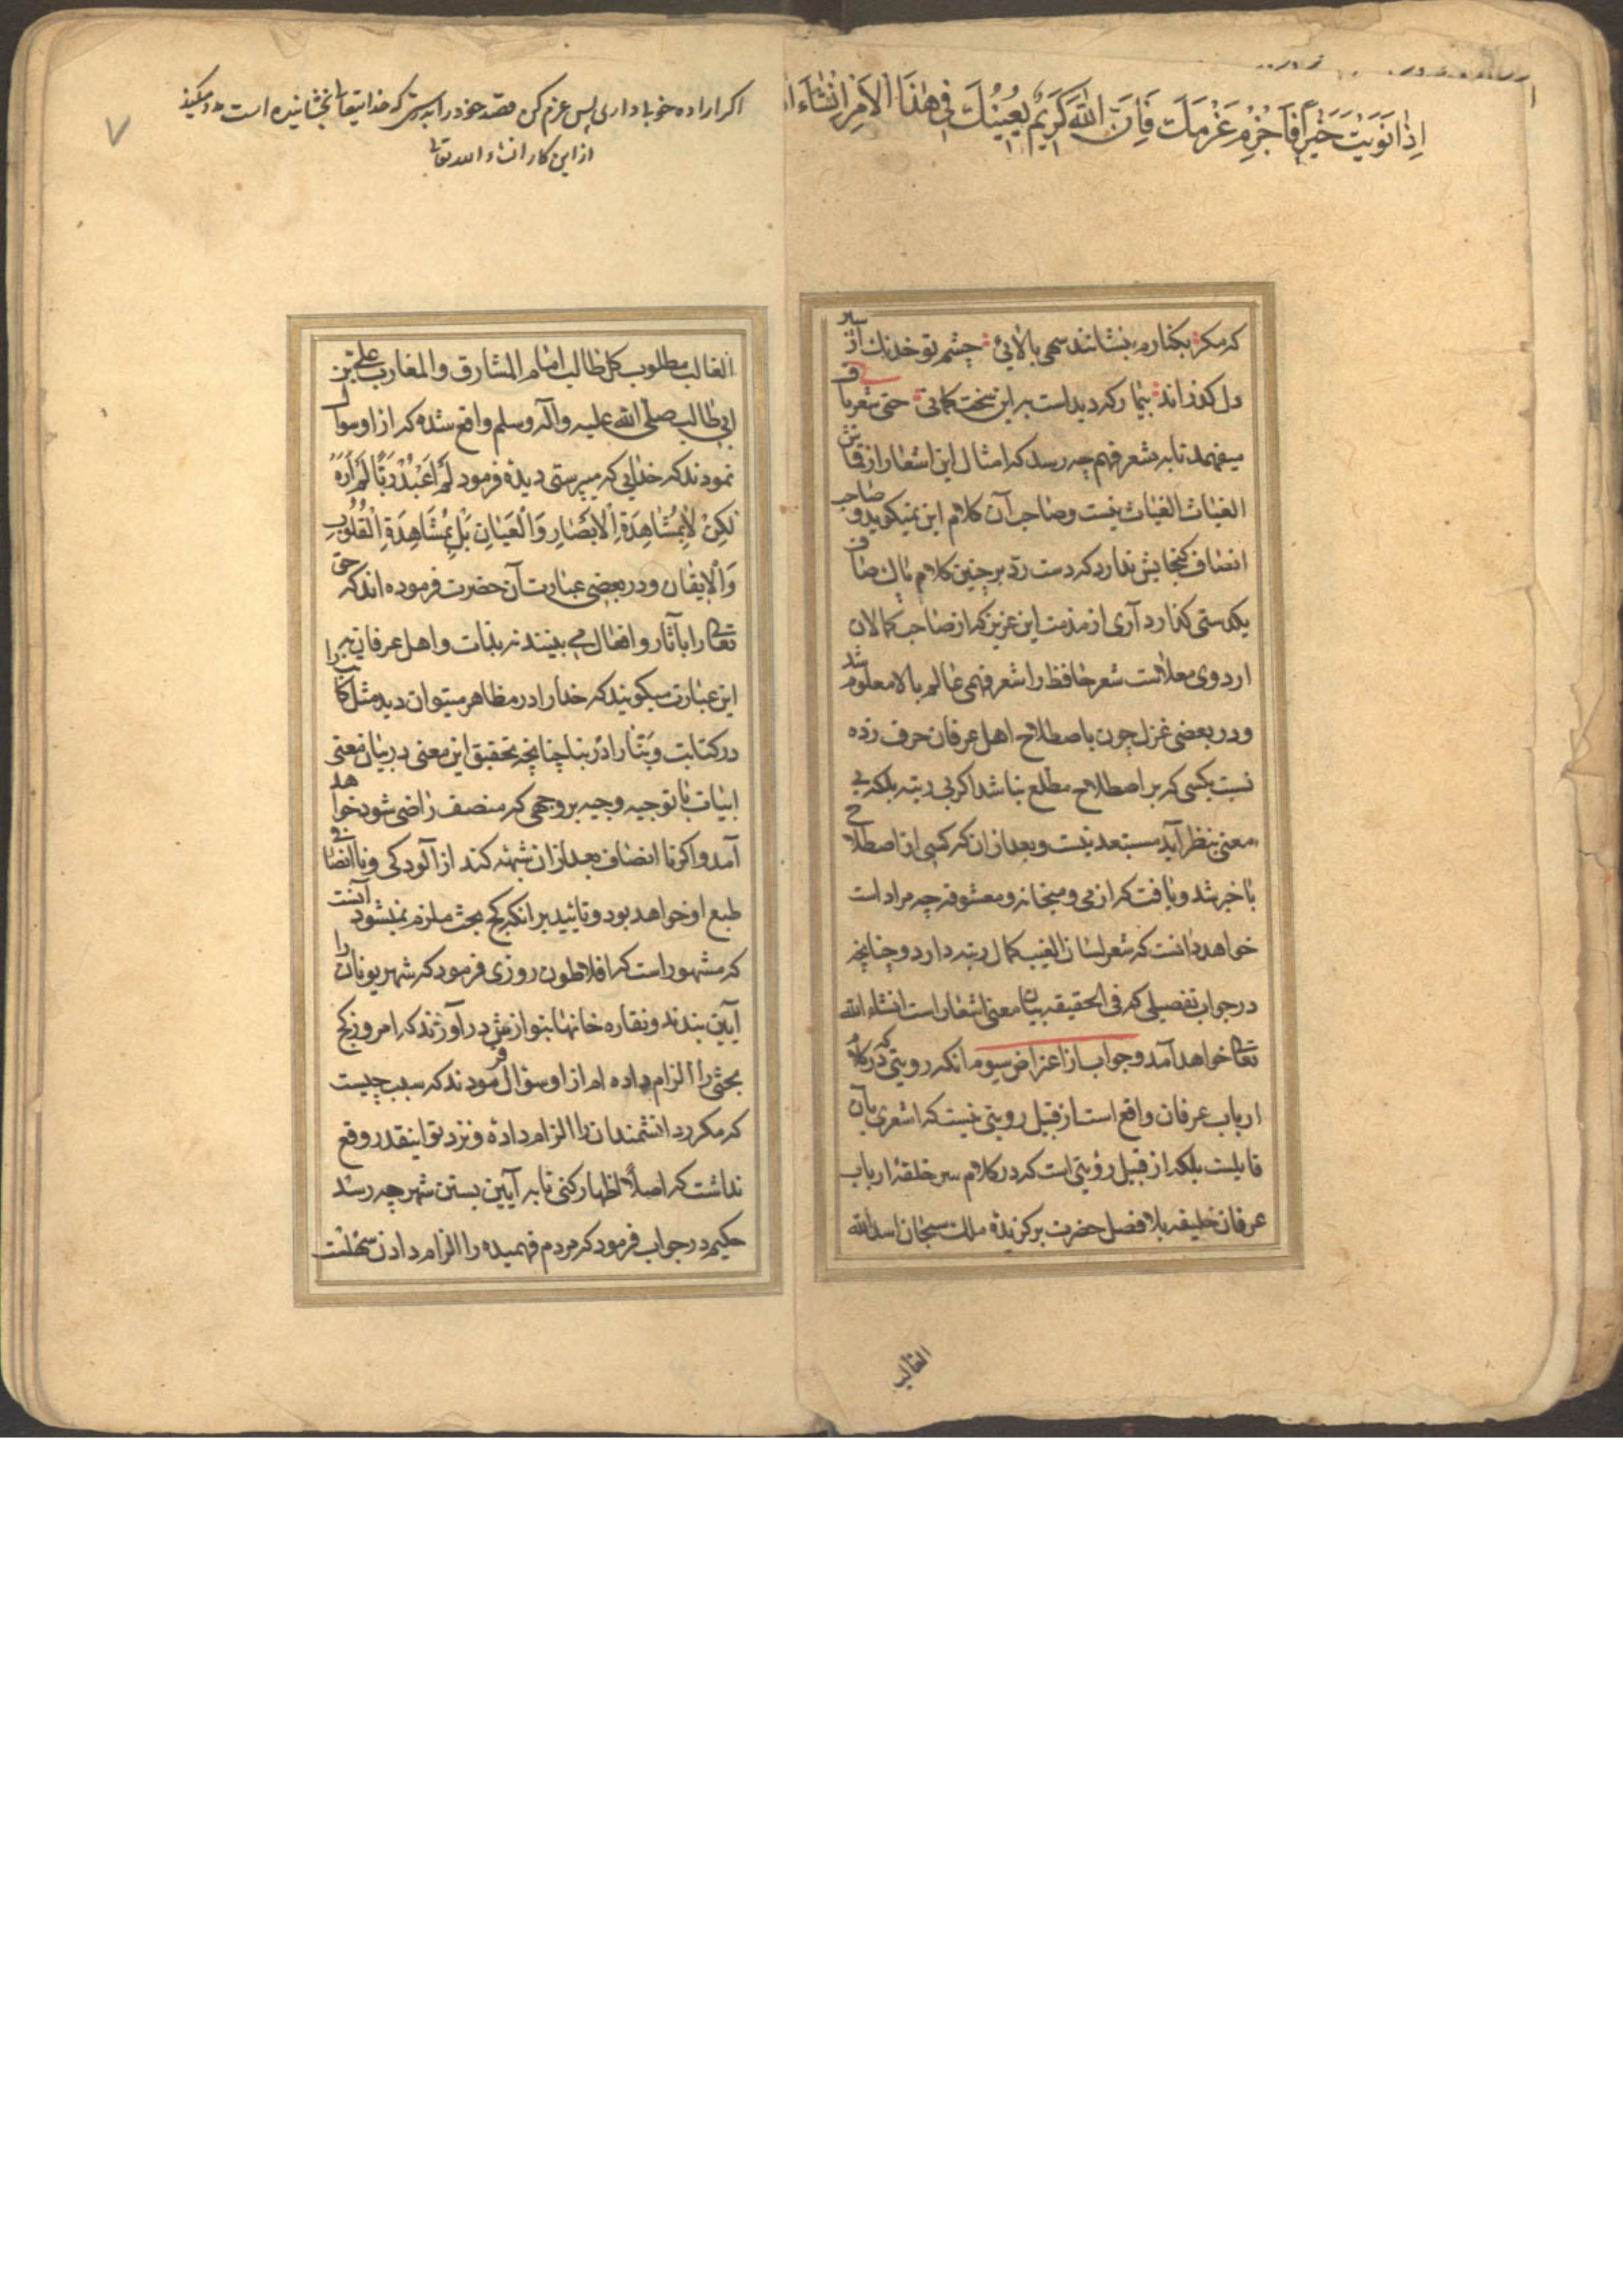 اِذَا نَوَيْتَ خَيْراً فَاجْزِمْ عَزْمَكَ فَاِنَّ اللّٰهَ كَرِيْمٌ يُعِيْنُكَ فِي هٰذَا الْاَمْرِ اِنْشَاءَ
که مکر بکنارم بنشانند سهی بالائی چشم تو خدنك از سپر
دل کذراند بیمار که دیداست بدین سخت کمانی حتی شعر باف
میفهمد تا به شعر فهم چه رسد که امثال این اشعار از قماش
الغیاث الغیاث نیست و صاحب آن کلام این نمیکوید و صاحب
انصاف کنجایش ندارد که دست رد بر چنین کلام پاك صاف
یکدستی کذارد آری از مذمت این عزیز که از صاحب کمالان
اردوی معلاست شعر حافظ را شعر فهمی عالم بالا معلوم شد
و در بعضی غزل چون باصطلاح اهل عرفان حرف زده
نسبت بکسی که بر اصطلاح مطلع نباشد اکر بی رتبه بلکه بی
معنی بنظر آید مستبعد نیست و بعد از ان که کسی از اصطلاح
با خبر شد و یافت که از می و میخانه و معشوقه چه مراد است
خواهد دانست که شعر لسان الغیب کمال رتبه دارد و چنانچه
در جواب تفصیلی که فی الحقیقه بیان معنی اشعار است انشاء الله
تعالی خواهد آمد و جواب از اعتراض سیوم انکه رویتی که در کلام
ارباب عرفان واقع است از قبیل رویتی نیست که اشعری بآن
قایلست بلکه از قبیل رؤیتی است که در کلام سر حلقهٔ ارباب
عرفان خلیفه بلا فصل حضرت برکزیدهٔ ملك سبحان اسد الله
الغالب
اکر اراده خوبا داری پس عزم کن قصد خود را بدرستی که خدایتعالی بخشاینده است مدد میکند
از این کار انشاء الله تعالی
الغالب مطلوب کل طالب امام المشارق والمغارب علی بن
ابی طالب صلی الله علیه وآله وسلم واقع شده که از او سوال
نمودند که خدایی که میپرستی دیدهٔ فرمود لَمْ اَعْبُدْ رَبًّا لَمْ اَرَهُ
لكِنْ لَا بِمُشَاهَدَةِ الْاَبْصَارِ وَالْعَيَانِ بَلْ بِمُشَاهَدَةِ الْقُلُوْبِ
وَالْاِيْقَان و در بعضی عبارت آن حضرت فرموده اند که حق
تعالی را بآثار و افعال می بینند نه بذات و اهل عرفان
این عبارت میکویند که خدا را در مظاهر میتوان دید مثل کاتب را
در کتابت و بنّا را در بنا چنانچه تحقیق این معنی در بیان معنی
ابیات با توجیه وجیه بروجهی که منصف راضی شود خواهد
آمد و اکر نا انصاف بعد از ان شبهه کند از آلودکی و نا انصافی
طبع او خواهد بود و تائید بر انکه کج بحث ملزم نمیشود آنست
که مشهور است که افلاطون روزی فرمود که شهر یونان را
آیین بندند و نقاره خانها بنوازش در آورند که امروز کج
بحثی را الزام داده ام از او سؤال فرمودند که سبب چیست
که مکرر دانشمندان را الزام داده و نزد تو اینقدر وقع
نداشت که اصلاً اظهار کنی تا به آیین بستن شهر چه رسد
حکیم در جواب فرمود که مردم فهمیده را الزام دادن سهلست